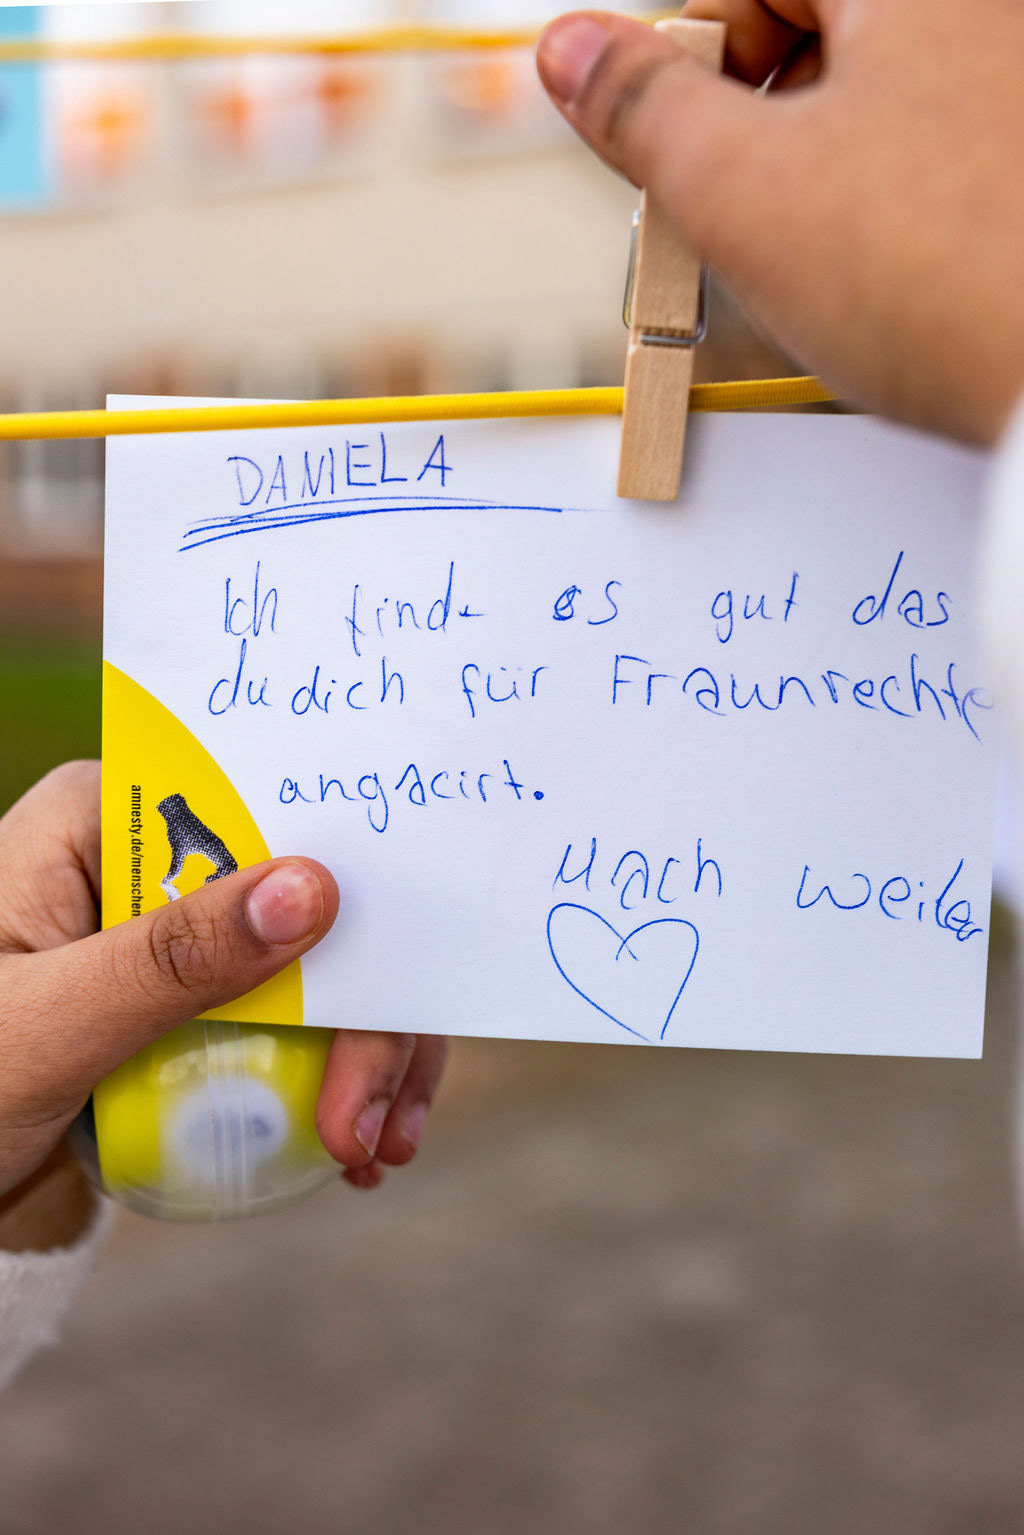 DANIELA
Ich finde es gut das
du dich für Fraunrechte
angacirt.
Mach weiter
amnesty.de/menschen